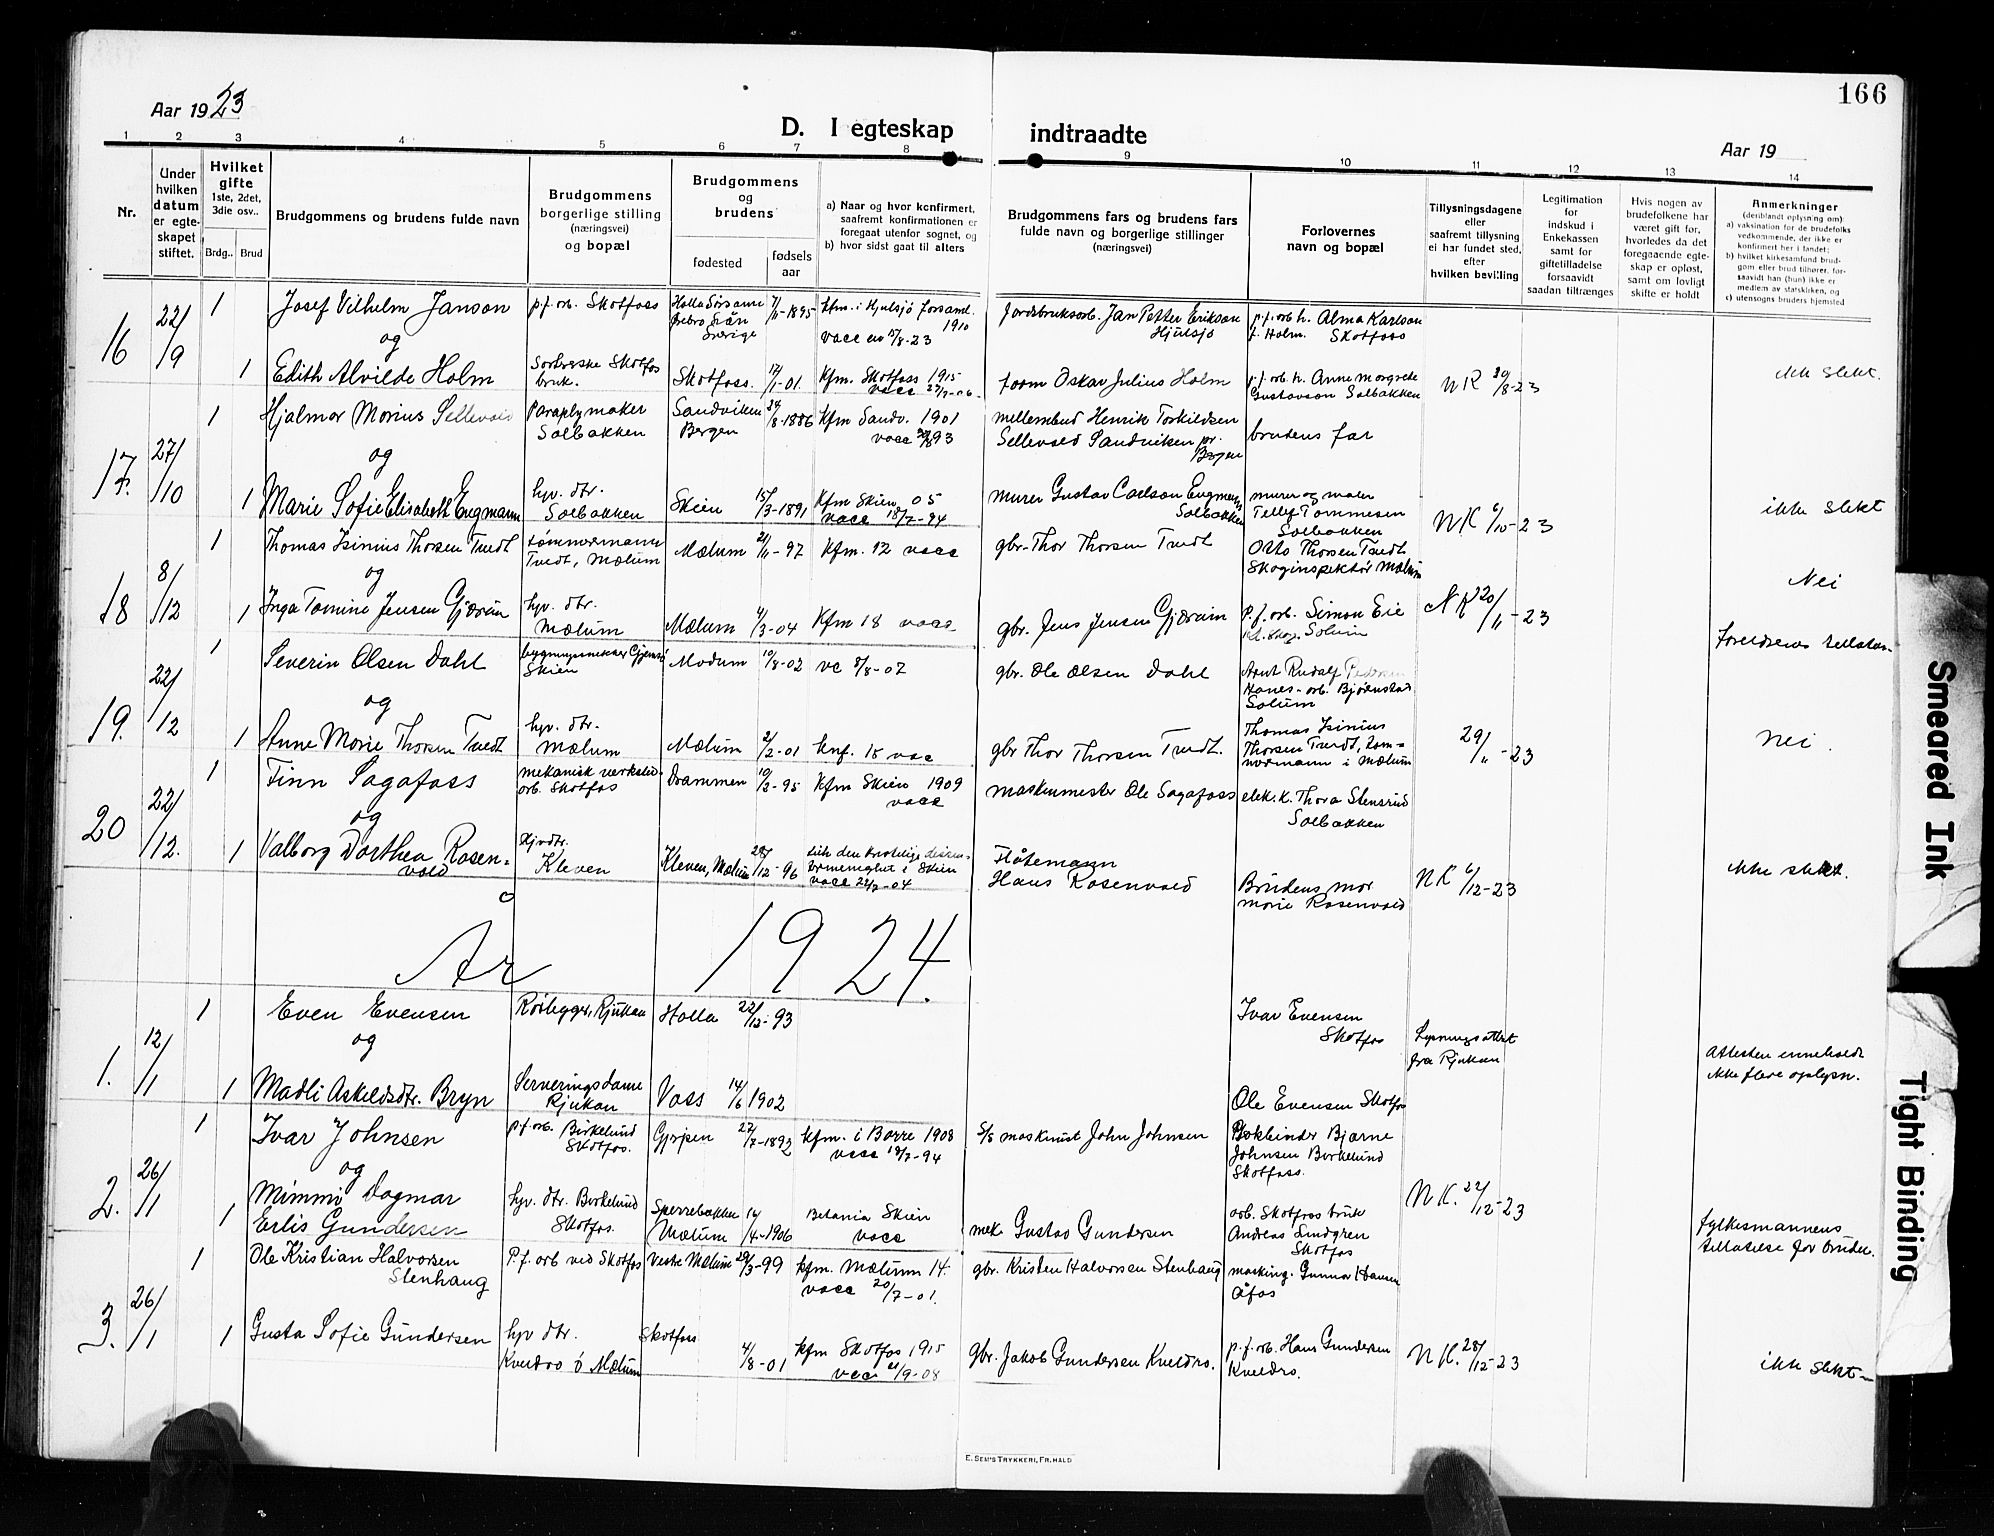 166
Aar 1923
D. I egteskap indtraadte
Aar 19
1 2 3 4 5 6 7 8 9 10 11 12 13 14
Nr.
Under hvilken datum er egteskapet stiftet.
Hvilket gifte 1ste, 2det, 3die osv..
Brdg.. Brud
Brudgommens og brudens fulde navn
Brudgommens borgerlige stilling (næringsvei) og bopæl
Brudgommens og brudens
fødested
fødsels aar
a) Naar og hvor konfirmert, saafremt konfirmationen er foregaat utenfor sognet, og
b) hvor sidst gaat til alters
Brudgommens fars og brudens fars fulde navn og borgerlige stillinger (næringsvei)
Forlovernes navn og bopæl
Tillysningsdagene eller saafremt tillysning ei har fundet sted, efter hvilken bevilling
Legitimation for indskud i Enkekassen samt for giftetilladelse forsaavidt saadan tiltrænges
Hvis nogen av brudefolkene har været gift før, hvorledes da det foregaaende egteskap er opløst, samt om lovligt skifte er holdt
Anmerkninger (deriblandt oplysning om):
a) vaksination for de brudefolks vedkommende, der ikke er konfirmert her i landet;
b) hvilket kirkesamfund brudgom eller brud tilhører, forsaavidt han (hun) ikke er medlem av statskirken, og
c) utensogns bruders hjemsted
16 22/9 1 Josef Vilhelm Janson p.f. orb. Skotfoss 7/11-1895 kfm. i Hjulsjö forsaml. 1910 Jordbruksorb. Jan Petter Erikson Hjulsjö p.f. orb h. Alma Karlson f. Holm. Skotfoss
Sverige vacc 15/8-23
og
1 Edith Alvilde Holm Skotfos bruk. Skotfoss. 17/1-01. kfm. Skotfoss 1915 vacc form Oskar Julius Holm p.f. orb. h. Anne Margrete Gustavson Solbakken NK 30/8-23 ikke slekt.
17. 27/10 1 Hjalmar Marius Sellevold Paraplymaker Solbakken Sandviken Bergen 24/8-1886 kfm Sandv. 1901 vacc Henrik Torkildsen Sellevold Sandviken pr. Bergen brudens far
og
1 Marie Sofie Elisabeth Engmann hyv. dtr. Solbakken Skien 15/3-1891 kfm Skien 05 vacc 18/7-94 murer Gustav Carlson Engmann Solbakken murer og maler Tellef Tommesen Solbakken NK 6/10-23 ikke slekt
18 8/12 1 Thomas Isinius Thorsen Tvedt tømmermann Tvedt, Mælum Mælum 21/11-97 kfm. 12 vacc gbr. Thor Thorsen Tvedt Otto Thorsen Tvedt Skoginspektør Mælum
og Nei
1 Inga Tomine Jensen Gjærum hyv. dtr. Mælum Mælum 4/3-04 kfm 18 vacc gbr. Jens Jensen Gjærum p.f. orb. Simon Eie Solum NK 20/11-23
19. 22/12 1 Severin Olsen Dahl Skien Modum 10/8-02 gbr. Ole Olsen Dahl Arnt Rudolf Pedersen Hanes-orb. Bjørnstad Solum
og
1 Anne Marie Thorsen Tvedt hyv. dtr. Mælum Mælum 2/2-01 knf. 15 vac gbr Thor Thorsen Tvedt. Thomas Isinius Thorsen Tvedt, tømmermann i Mælum 29/11-23 Nei.
20 22/12. 1 Finn Sagafoss mekanisk verksted orb. Skotfos Drammen 10/2-95 kfm Skien 1909 vacc maskinmester Ole Sagafoss elek. k. Thora Stensrud Solbakken
og
1 Valborg Dorthea Rosenvold Hjv dtr. Kleven Kleven, Mælum 28/12-96 i Skien vacc 22/7-04 Fløtemann Hans Rosenvold Brudens mor Marie Rosenvold NK 6/12-23 ikke slekt.
År 1924.
1. 12/1 1 Even Evensen Rjukan Holla 22/12-93 Ivar Evensen Skotfos
og Lysningsattest fra Rjukan
1 Madli Askeldsdtr. Bryn Serveringsdame Rjukan Voss 14/6 1902 Ole Evensen Skotfos Attesten inneholdt ikke flere oplysn.
2. 26/1 1 Ivar Johnsen p.f. orb. Birkelund Skotfos. Gjerpen 27/7-1892 kfm. i Borre 1908 vacc 18/7-94 S/S maskinist John Johnsen Bokbinder Bjarne Johnsen Birkelund Skotfoss.
og
1 Mimmi Dagmar Erlis Gundersen hyv. dtr. Birkelund Skotfos. Sperrebakken Mælum 14/4-1906 Betania Skien vacc mek Gustav Gundersen orb. Skotfoss bruk Andreas Lindgren Skotfos NK. 22/12-23 fylkesmannens tillatelse for bruden.
3. 26/1 1 Ole Kristian Halvorsen Stenhaug P.f. orb ved Skotfos Vestre Mælum 29/3-99 kfm. Mælum 14. vacc 20/7-01. gbr. Kristen Halvorsen Stenhaug masking. Gunnar Hansen Åfos
1 Gusta Sofie Gundersen hyv dtr. Kveldro ö Mælum Skotfoss 4/8-01 kfm Skotfos 1915 vacc 21/9-08 gbr. Jakob Gundersen Kveldro. p.f. orb. Hans Gundersen Kveldro. NK. 28/12-23 ikke slekt
E. SEM'S TRYKKERI, FR.HALD
Smeared Ink
Tight Binding